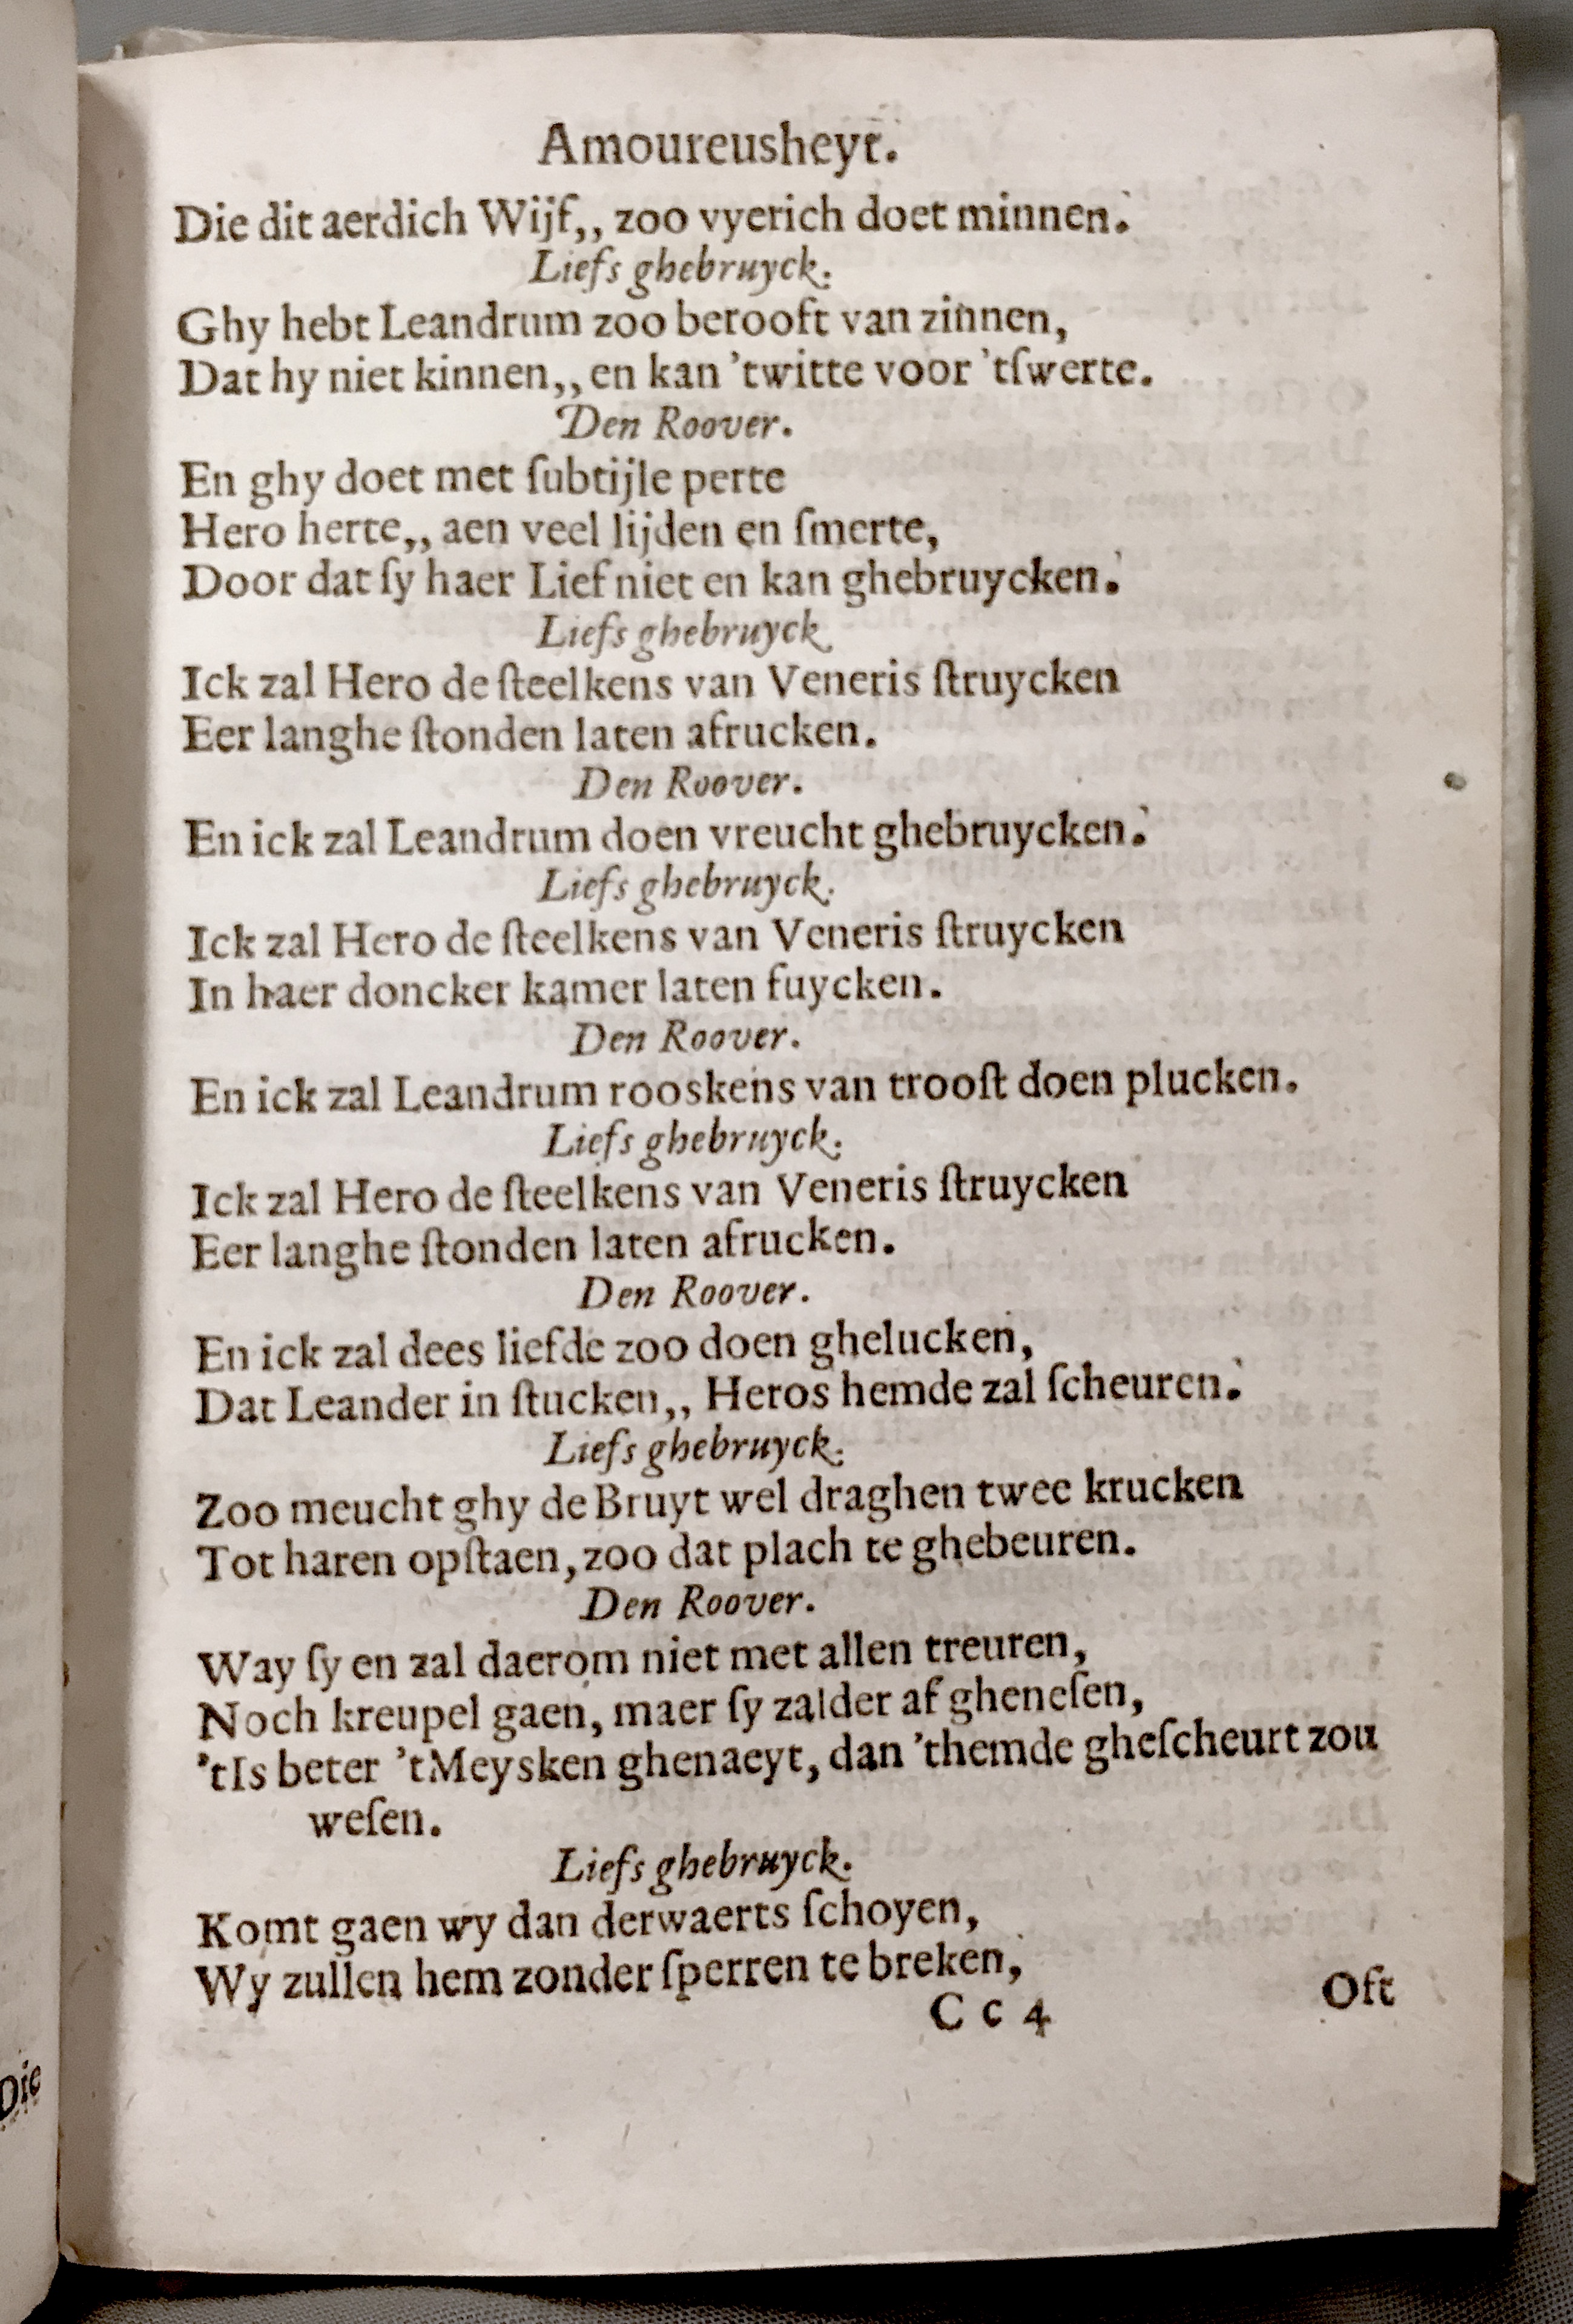 Amoureusheyt.
Die dit aerdich Wijf,, zoo vyerich doet minnen.
Liefs ghebruyck.
Ghy hebt Leandrum zoo berooft van zinnen,
Dat hy niet kinnen,, en kan 'twitte voor 'tſwerte.
Den Roover.
En ghy doet met ſubtijle perte
Hero herte,, aen veel lijden en ſmerte,
Door dat ſy haer Lief niet en kan ghebruycken.
Liefs ghebruyck
Ick zal Hero de ſteelkens van Veneris ſtruycken
Eer langhe ſtonden laten afrucken.
Den Roover.
En ick zal Leandrum doen vreucht ghebruycken.
Liefs ghebruyck.
Ick zal Hero de ſteelkens van Veneris ſtruycken
In haer doncker kamer laten fuycken.
Den Roover.
En ick zal Leandrum rooskens van trooſt doen plucken.
Liefs ghebruyck.
Ick zal Hero de ſteelkens van Veneris ſtruycken
Eer langhe ſtonden laten afrucken.
Den Roover.
En ick zal dees liefde zoo doen ghelucken,
Dat Leander in ſtucken,, Heros hemde zal ſcheuren.
Liefs ghebruyck.
Zoo meucht ghy de Bruyt wel draghen twee krucken
Tot haren opſtaen, zoo dat plach te ghebeuren.
Den Roover.
Way ſy en zal daerom niet met allen treuren,
Noch kreupel gaen, maer ſy zalder af gheneſen,
'tIs beter 'tMeysken ghenaeyt, dan 'themde gheſcheurt zou
weſen.
Liefs ghebruyck.
Komt gaen wy dan derwaerts ſchoyen,
Wy zullen hem zonder ſperren te breken,
Cc 4
Oft
Die